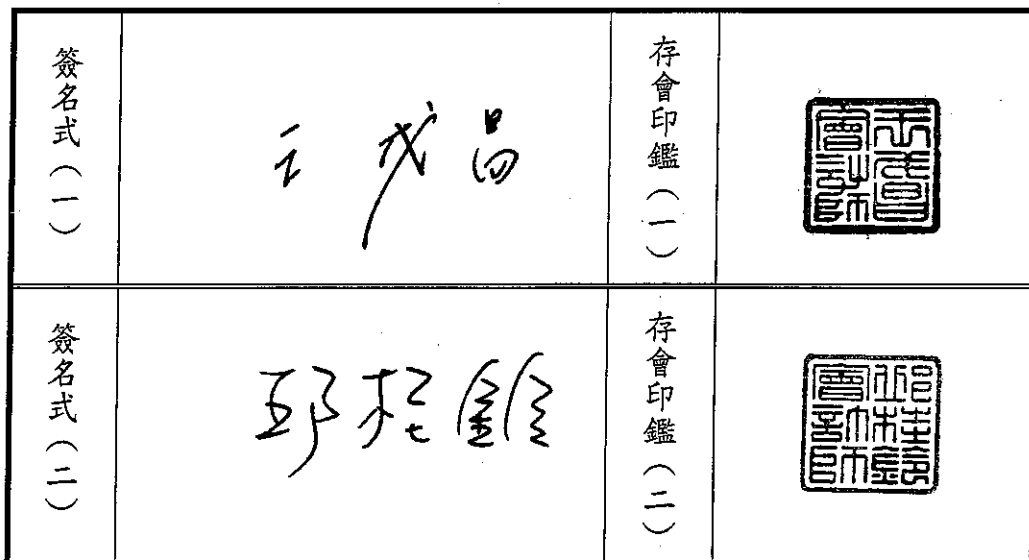 簽名式（一）
王戊昌
存會印鑑（一）
王戊昌
會計師
簽名式（二）
邱桂鈴
存會印鑑（二）
邱桂鈴
會計師